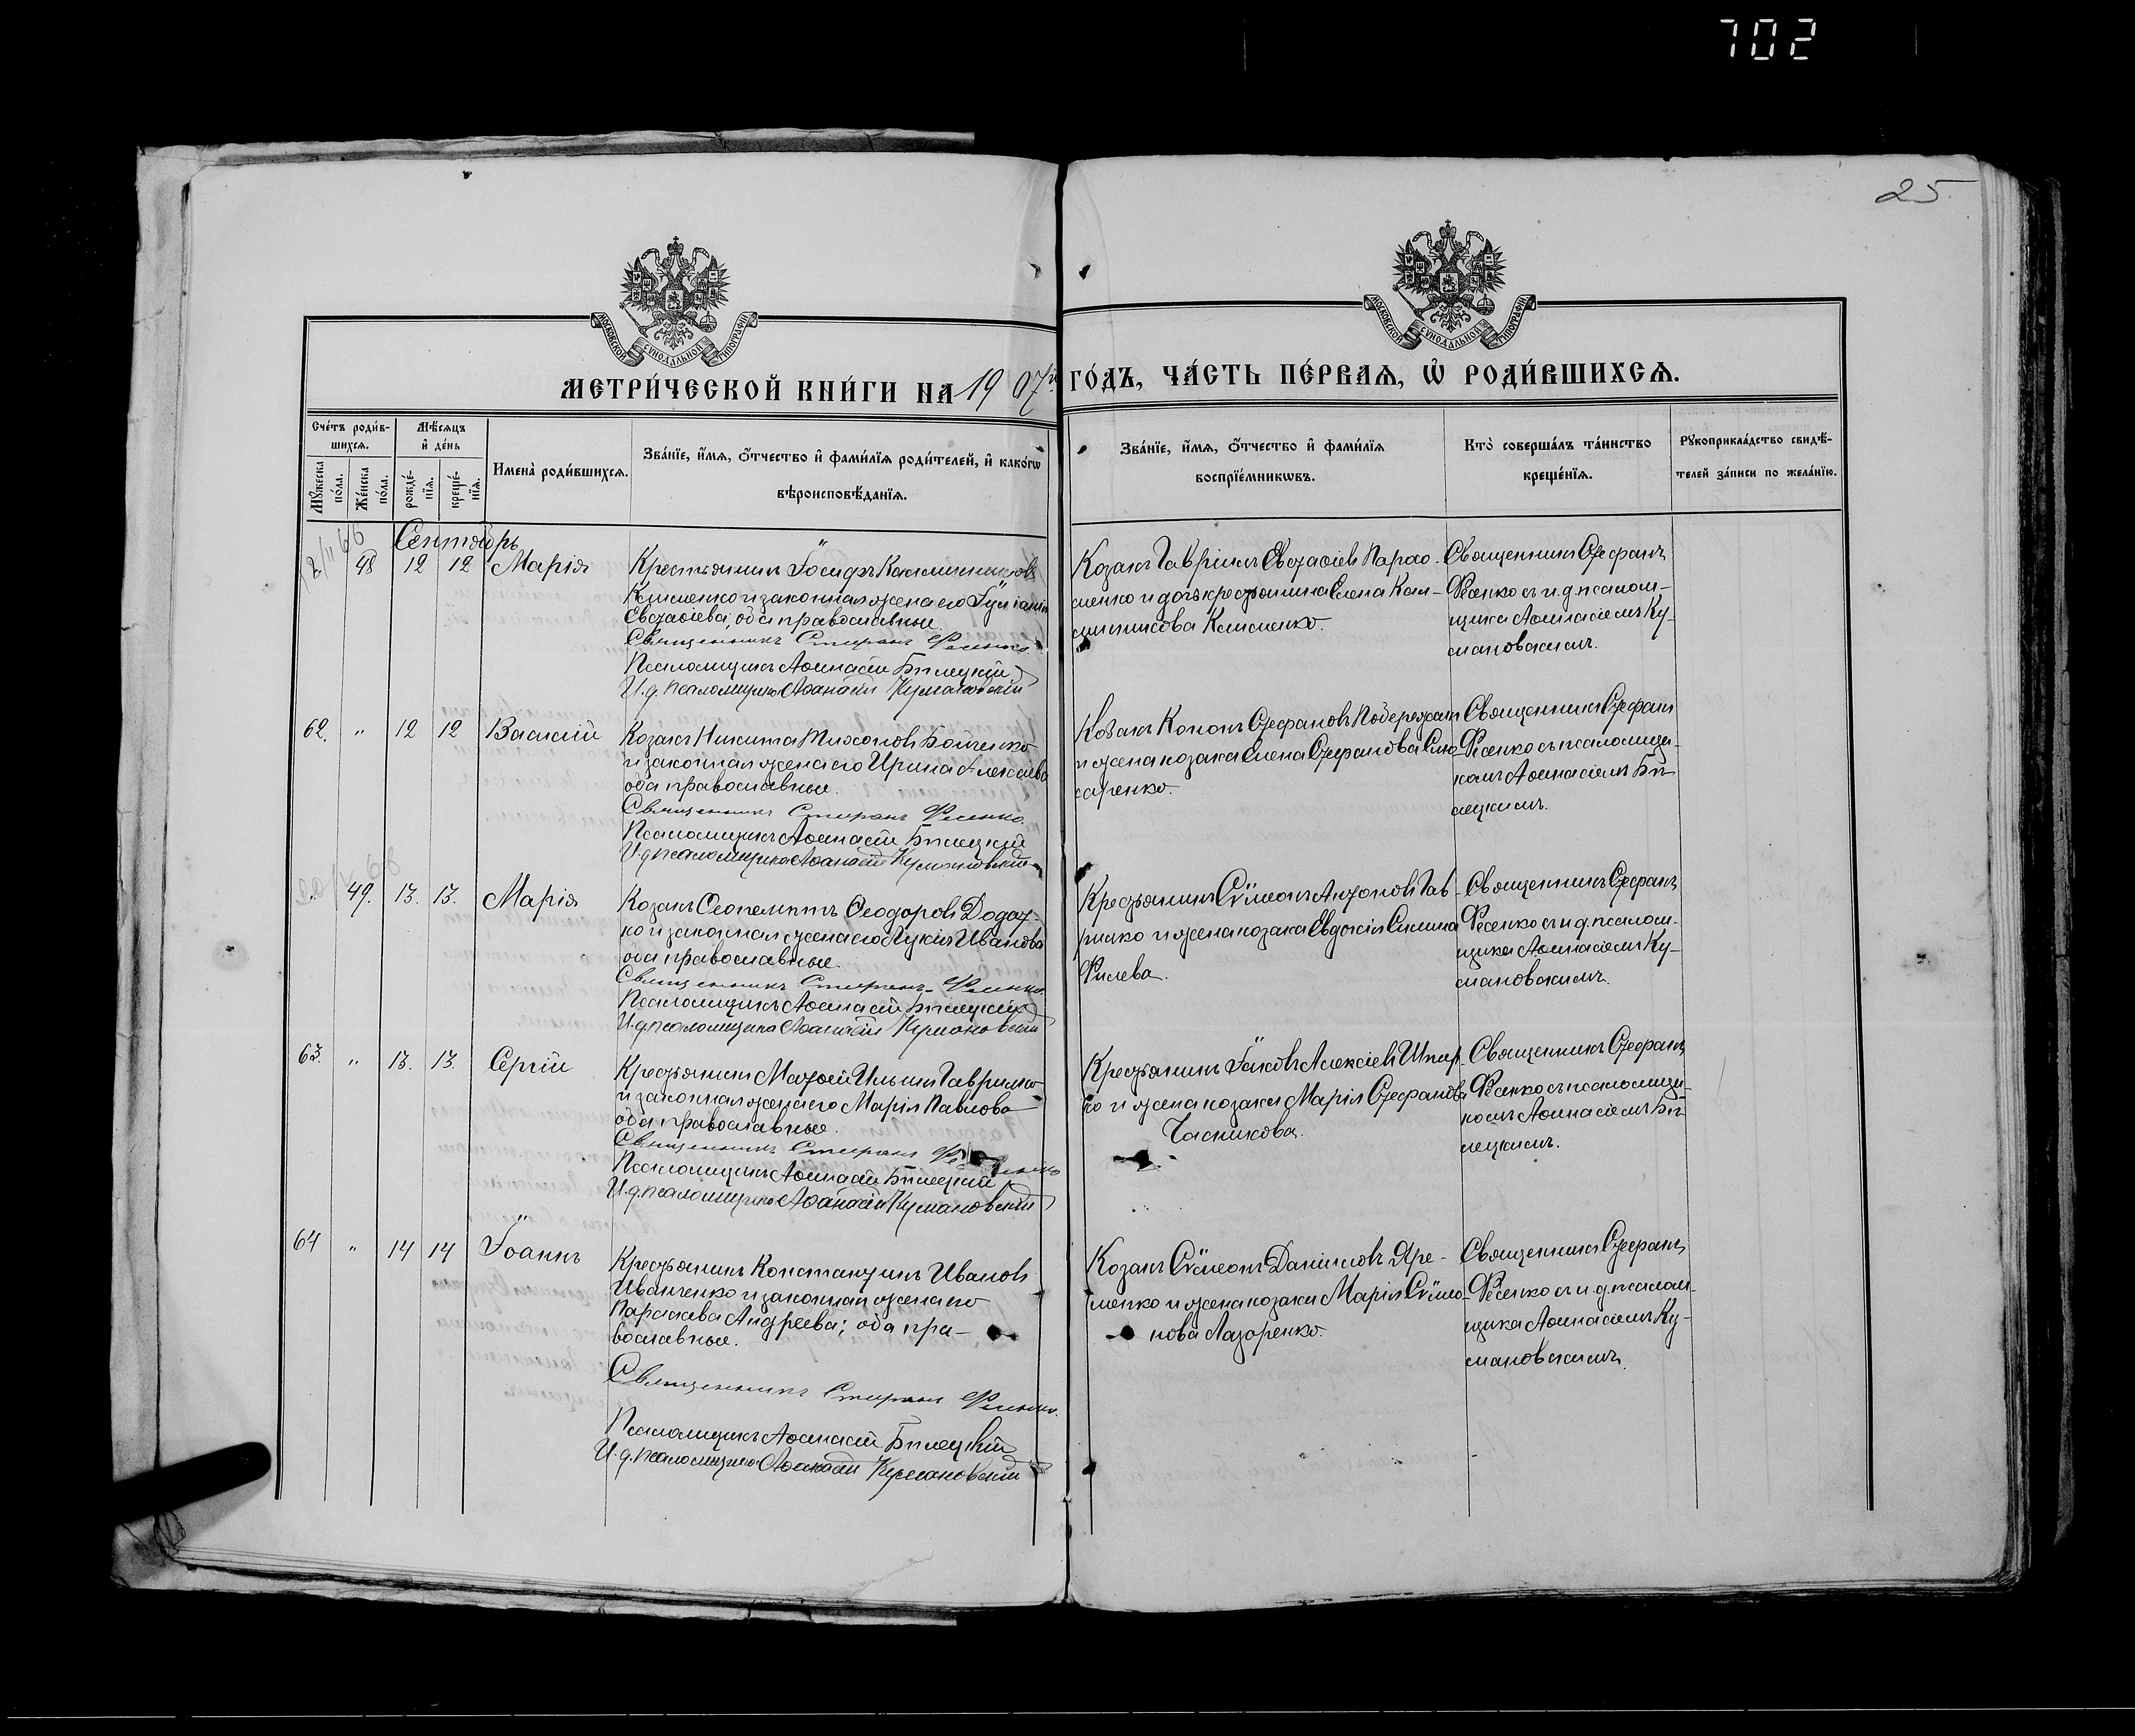 702
25
МОСКОВСКОЙ СѴНОДАЛЬНОЙ ТИПОГРАФІИ
МОСКОВСКОЙ СѴНОДАЛЬНОЙ ТИПОГРАФІИ
МЕТРИ́ЧЕСКОЙ КНИ́ГИ НА 1907й ГО́ДЪ, ЧА́СТЬ ПЕ́РВАѦ, Ѡ҆ РОДИ́ВШИХСѦ.
Сче́тъ роди́в-
шихсѧ.
Мꙋ́жеска по́ла.
Же́нска по́ла.
Мѣ́сѧцъ
и҆ де́нь
рожде́-
нїѧ.
креще́-
нїѧ.
И҆мена̀ роди́вшихсѧ.
Зва́нїе, и҆́мѧ, ѻ҆́тчество и҆ фами́лїѧ роди́телей, и҆ како́гѡ
вѣроисповѣ́данїѧ.
Зва́нїе, и҆́мѧ, ѻ҆́тчество и҆ фами́лїѧ
воспрїе́мникѡвъ.
Кто̀ соверша́лъ та́инство
креще́нїѧ.
Рꙋкоприкла́дство свидѣ́-
телей за́писи по жела́нїю.
Сентябрь
48 12 12 Марія
Крестьянинъ Іосифъ Каллинниковъ
Клименко и законная жена его Іуліанія
Евстафіева, оба православные.
Священникъ Стефанъ Фесенко
Псаломщикъ Аѳанасій Билецкій
И.д. псаломщика Аѳанасій Кумановскій
Козакъ Гавріилъ Евстафіевъ
менко и дочь крестьянина Елена Кал-
линникова Клименко.
Священникъ Стефанъ
Фесенко съ и.д. псалом-
щика Аѳанасіемъ Ку-
мановскимъ.
62. " 12 12 Василій
Козакъ Никита Тихоновъ Бойченко
и законная жена его Ирина Алексіева
оба православные.
Священникъ Стефанъ Фесенко.
Псаломщикъ Аѳанасій Билецкій
И.д. псаломщика Аѳанасій Кумановскій
Козакъ Кононъ Стефановъ
и жена козака Елена Стефанова Слю-
саренко.
Священникъ Стефанъ
Фесенко съ псаломщи-
комъ Аѳанасіемъ Би-
лецкимъ.
49. 13. 13. Марія
Козакъ Ѳеопемптъ Ѳеодоровъ Додат-
ко и законная жена его Лукія Иванова
оба православные.
Священникъ Стефанъ Фесенко.
Псаломщикъ Аѳанасій Билецкій
И.д. псаломщика Аѳанасій Кумановскій
Крестьянинъ Сѵмеонъ Антоновъ Гав-
рилко и жена козака Евдокія Силина
Филева.
Священникъ Стефанъ
Фесенко съ и.д. псалом-
щика Аѳанасіемъ Ку-
мановскимъ.
63. " 13. 13. Сергій
Крестьянинъ Матѳей Ильинъ Гаврилко
и законная жена его Марія Павлова
оба православные.
Священникъ Стефанъ Фесенко
Псаломщикъ Аѳанасій Билецкій
И.д. псаломщика Аѳанасій Кумановскій
Крестьянинъ Іаковъ Алексіевъ
ко и жена козака Марія Стефанова
Часникова.
Священникъ Стефанъ
Фесенко съ псаломщи-
комъ Аѳанасіемъ Би-
лецкимъ.
64 " 14 14 Іоаннъ
Крестьянинъ Константинъ Ивановъ
Иванченко и законная жена его
Параскева Андреева; оба пра-
вославные.
Священникъ Стефанъ Фесенко.
Псаломщикъ Аѳанасій Билецкій
И.д. псаломщика Аѳанасій Кумановскій
Козакъ Сѵмеонъ Даніиловъ Яре-
менко и жена козака Марія Сѵмео-
нова Лазоренко.
Священникъ Стефанъ
Фесенко съ и.д. псалом-
щика Аѳанасіемъ Ку-
мановскимъ.